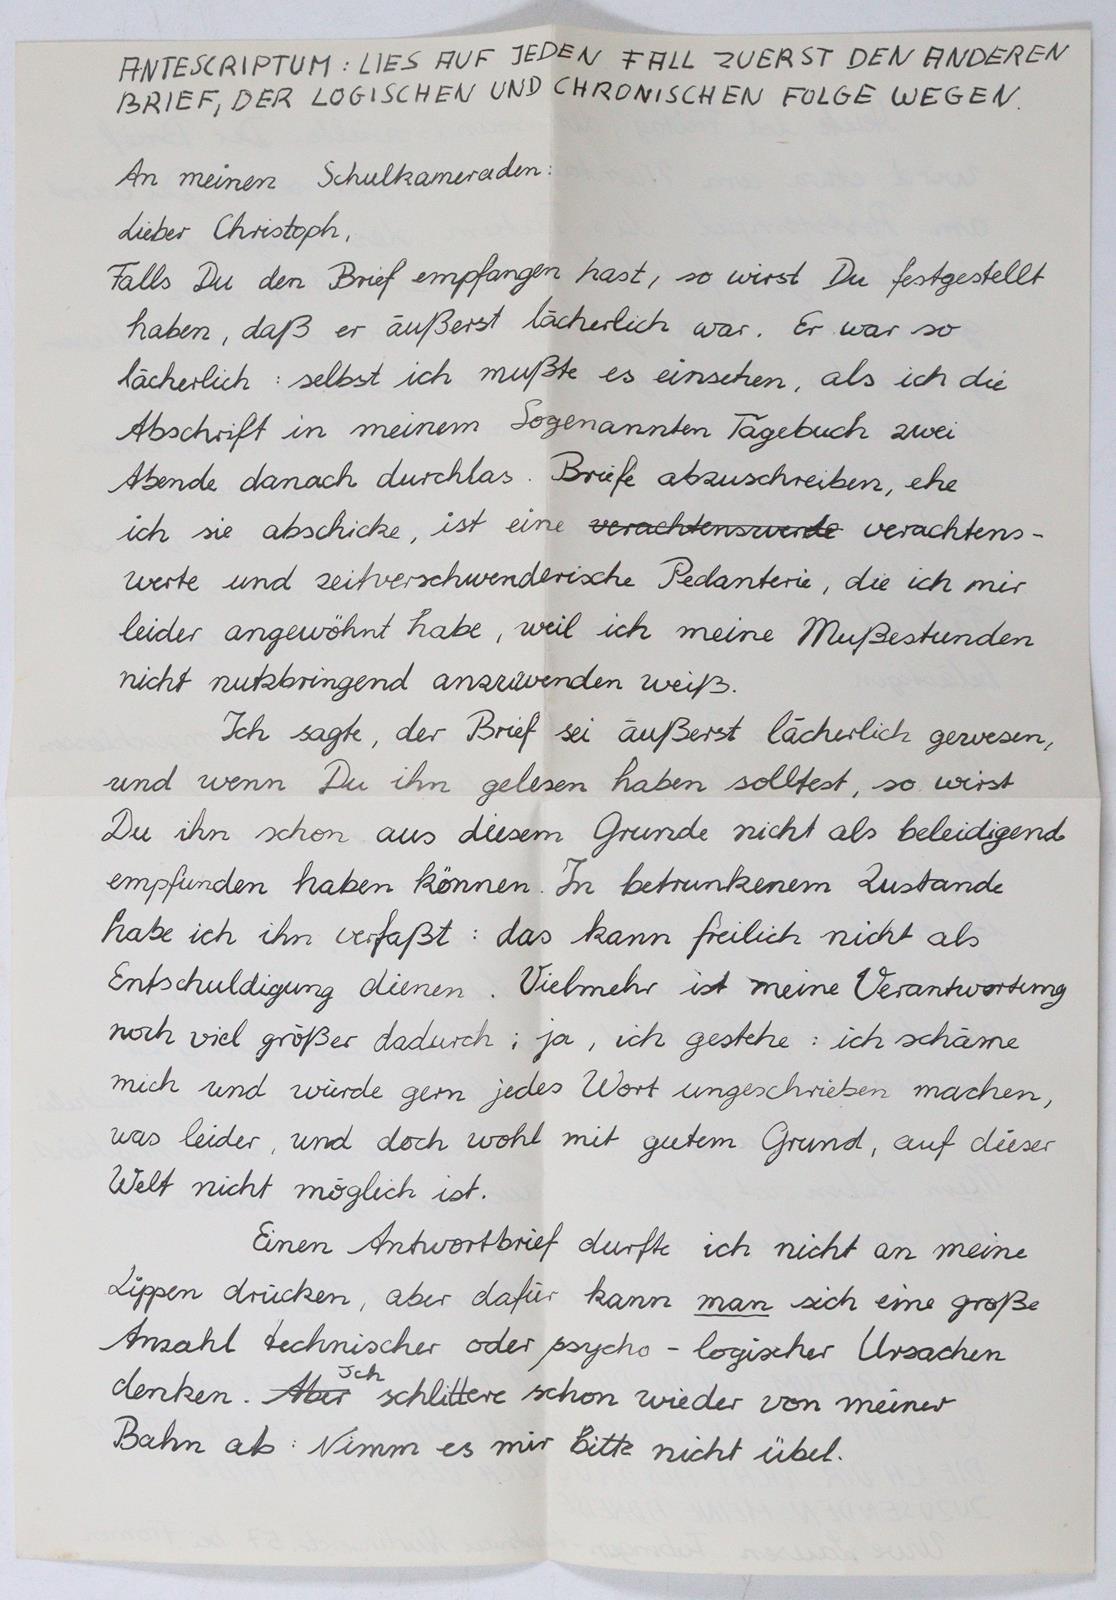 ANTESCRIPTUM: LIES AUF JEDEN FALL ZUERST DEN ANDEREN
BRIEF, DER LOGISCHEN UND CHRONISCHEN FOLGE WEGEN.
An meinen Schulkameraden:
Lieber Christoph,
Falls Du den Brief empfangen hast, so wirst Du festgestellt
haben, daß er äußerst lächerlich war. Er war so
lächerlich: selbst ich mußte es einsehen, als ich die
Abschrift in meinem Sogenannten Tagebuch zwei
Abende danach durchlas. Briefe abzuschreiben, ehe
ich sie abschicke, ist eine verachtenswerde verachtens-
werte und zeitverschwenderische Pedanterie, die ich mir
leider angewöhnt habe, weil ich meine Mußestunden
nicht nutzbringend anzuwenden weiß.
Ich sagte, der Brief sei äußerst lächerlich gewesen,
und wenn Du ihn gelesen haben solltest, so wirst
Du ihn schon aus diesem Grunde nicht als beleidigend
empfunden haben können. In betrunkenem Zustande
habe ich ihn verfaßt: das kann freilich nicht als
Entschuldigung dienen. Vielmehr ist meine Verantwortung
noch viel größer dadurch; ja, ich gestehe: ich schäme
mich und würde gern jedes Wort ungeschrieben machen,
was leider, und doch wohl mit gutem Grund, auf dieser
Welt nicht möglich ist.
Einen Antwortbrief durfte ich nicht an meine
Lippen drücken, aber dafür kann man sich eine große
Anzahl technischer oder psycho-logischer Ursachen
denken. Aber Ich schlittere schon wieder von meiner
Bahn ab: Nimm es mir bitte nicht übel.